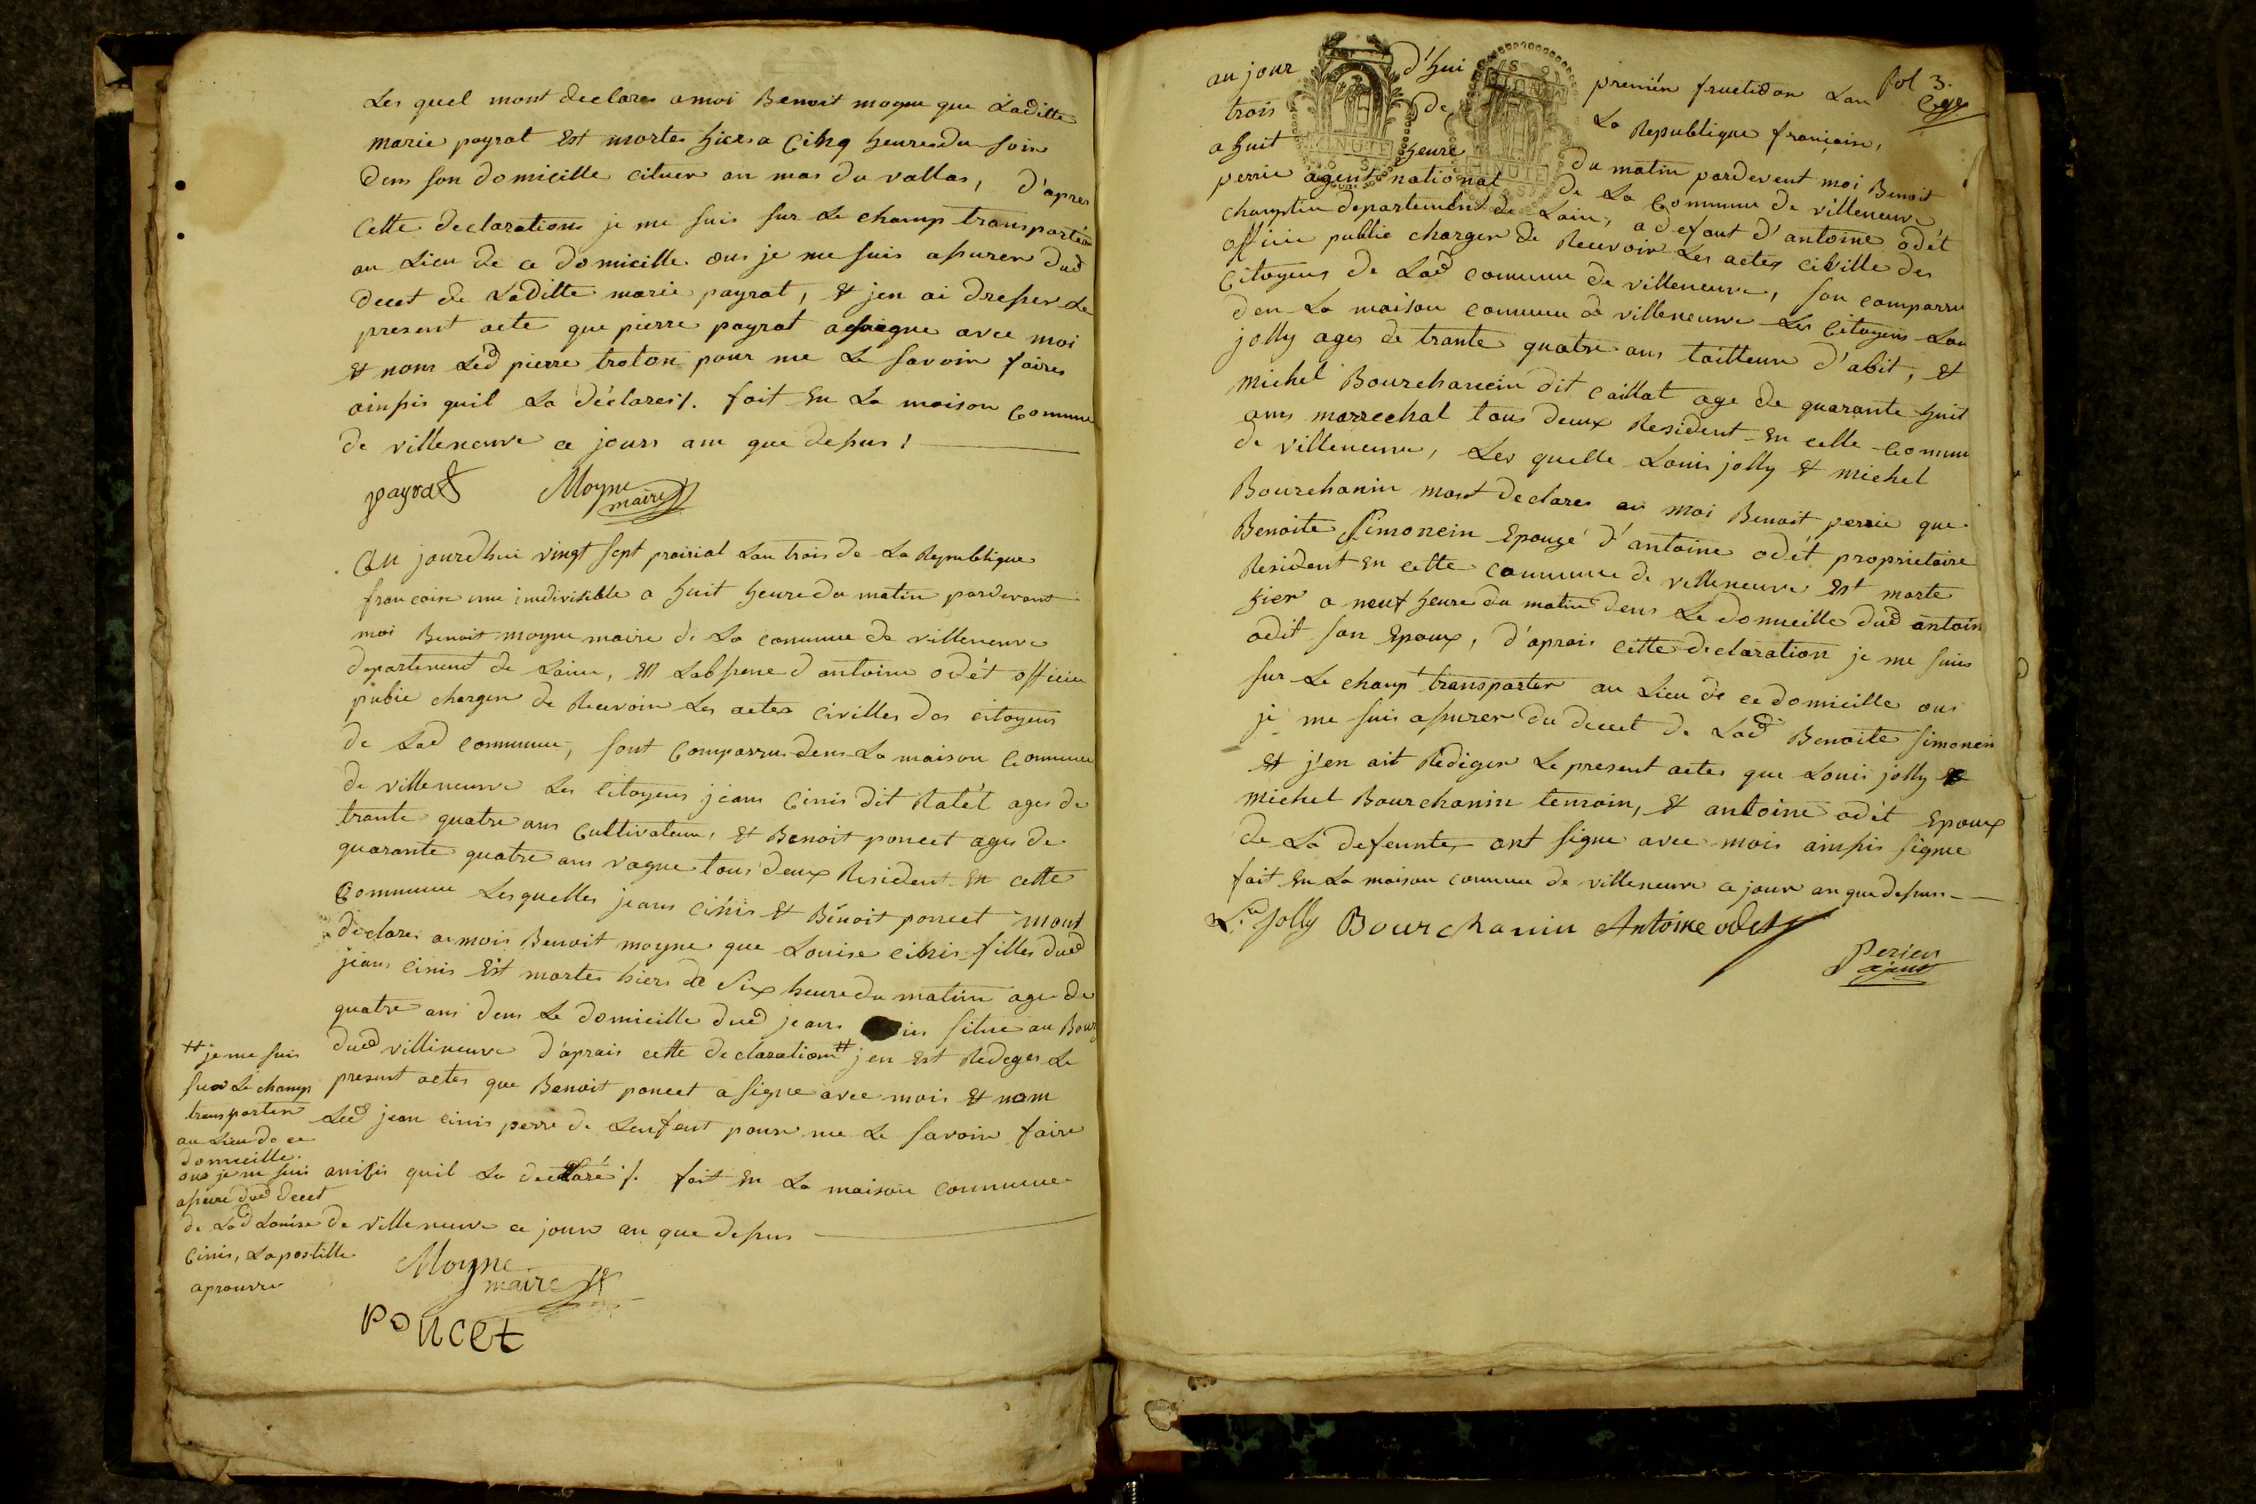 Les quel mont declare a moi Benoit moyne que Laditte
marie payrat Est mortes hier a Cihq heures du soir
dens son domicille cituer au mas du vallas, d'apres
Cette declaration je me suis sur Le champ transporter
au Lieu de ce domicille ous je me suis assurer dud
decet de Laditte marie payrat, & jen ai dresser Le
present acte que pierre payrat a signe avec moi
& nom Led pierre troton pour ne Le savoir faires
ainssis quil La déclares/. fait En La maison Commune
de villeneuve ce jours ans que dessus !
payrat Moyne
maire
Au jourdhui vingt sept prairial Lan trois de La Republique
francoise une indivisible a huit heure du matin pardevant
moi Benoit moyne maire de La commune de villeneuve
departement de Lain, En Labsence d'antoine odét officier
pubic charger de Recevoir Les actes civilles des citoyens
de Lad commune, sont Comparru dens La maison Commune
de villeneuve Les Citoyens jeans Cinis dit Ratét ages de
trante quatre ans Cultivateur, & Benoit poncet ages de
quarante quatre ans vague tous deux Resident En cette
Commune Lesquelles jeans cinis & Bénoit poncet mont
declares a mois Benoit moyne que Louise cinis filles dud
jeans cinis Est mortes hiers a Six heure du matin age de
quatre ans dens Le domicille dud jeans situe au Bourg
dud villeneuve d'aprais cette declaration # jen Est Redeger Le
present actes que Benoit poncet a signe avec mois & nom
Led jean cinis perre de Lenfent pour ne Le savoir faire
ainssis quil La declaré /. fait En La maison commune
de villeneuve ce jour an que dessus
# je me suis
sur Le champ
transporter
au Lieu de ce
domicille.
ous je me suis
assure dud decet
de Lad Louise
Cinis, Lapostille
aprouve
Moyne
maire
Poncet
fol 3.
au jour d'hui premier fructidor Lan
trois de La Republique francaise,
a huit heure du matin pardevent moi Benoit
perrie agent national de La Commune de villeneuve
departement de Lain, a defaut d'antoine odét
officie public charger de Recevoir Les actes civille des
Citoyens de Lad comune de villeneuve, son comparru
den La maison comune de villeneuve Les Citoyens Loui
jolly ages de trante quatre ans tailleur d'abit, &
Michel Bourchanein dit Caillat age de quarante huit
ans marrechal tous deux Resident En celle Comune
de villeneuve, Les quelle Louis jolly & michel
Bourchanin mont declares au moi Benoit perrie que
Benoite Simonein Epouzé d'antoine odét proprietaire
Resident En cette commune de villeneuve Est morte
hier a neuf heure du matin dens Le domicille dud antoin
odit son Epoux, d'aprais cette declaration je me suis
sur Le champ transporter au Lieu de ce domicille ous
je me suis assurer du decet de Lad Benoite simonein
& j'en ait Rediger Le present actes que Louis jolly &
Michel Bourchanin temoin, & antoine odét Epoux
de La defeunte ont signe avec mois ainssis signe
fait En La maison comune de villeneuve ce jour an que dessus
L.s jolly Bourchanin Antoine odet
Perier
ajent